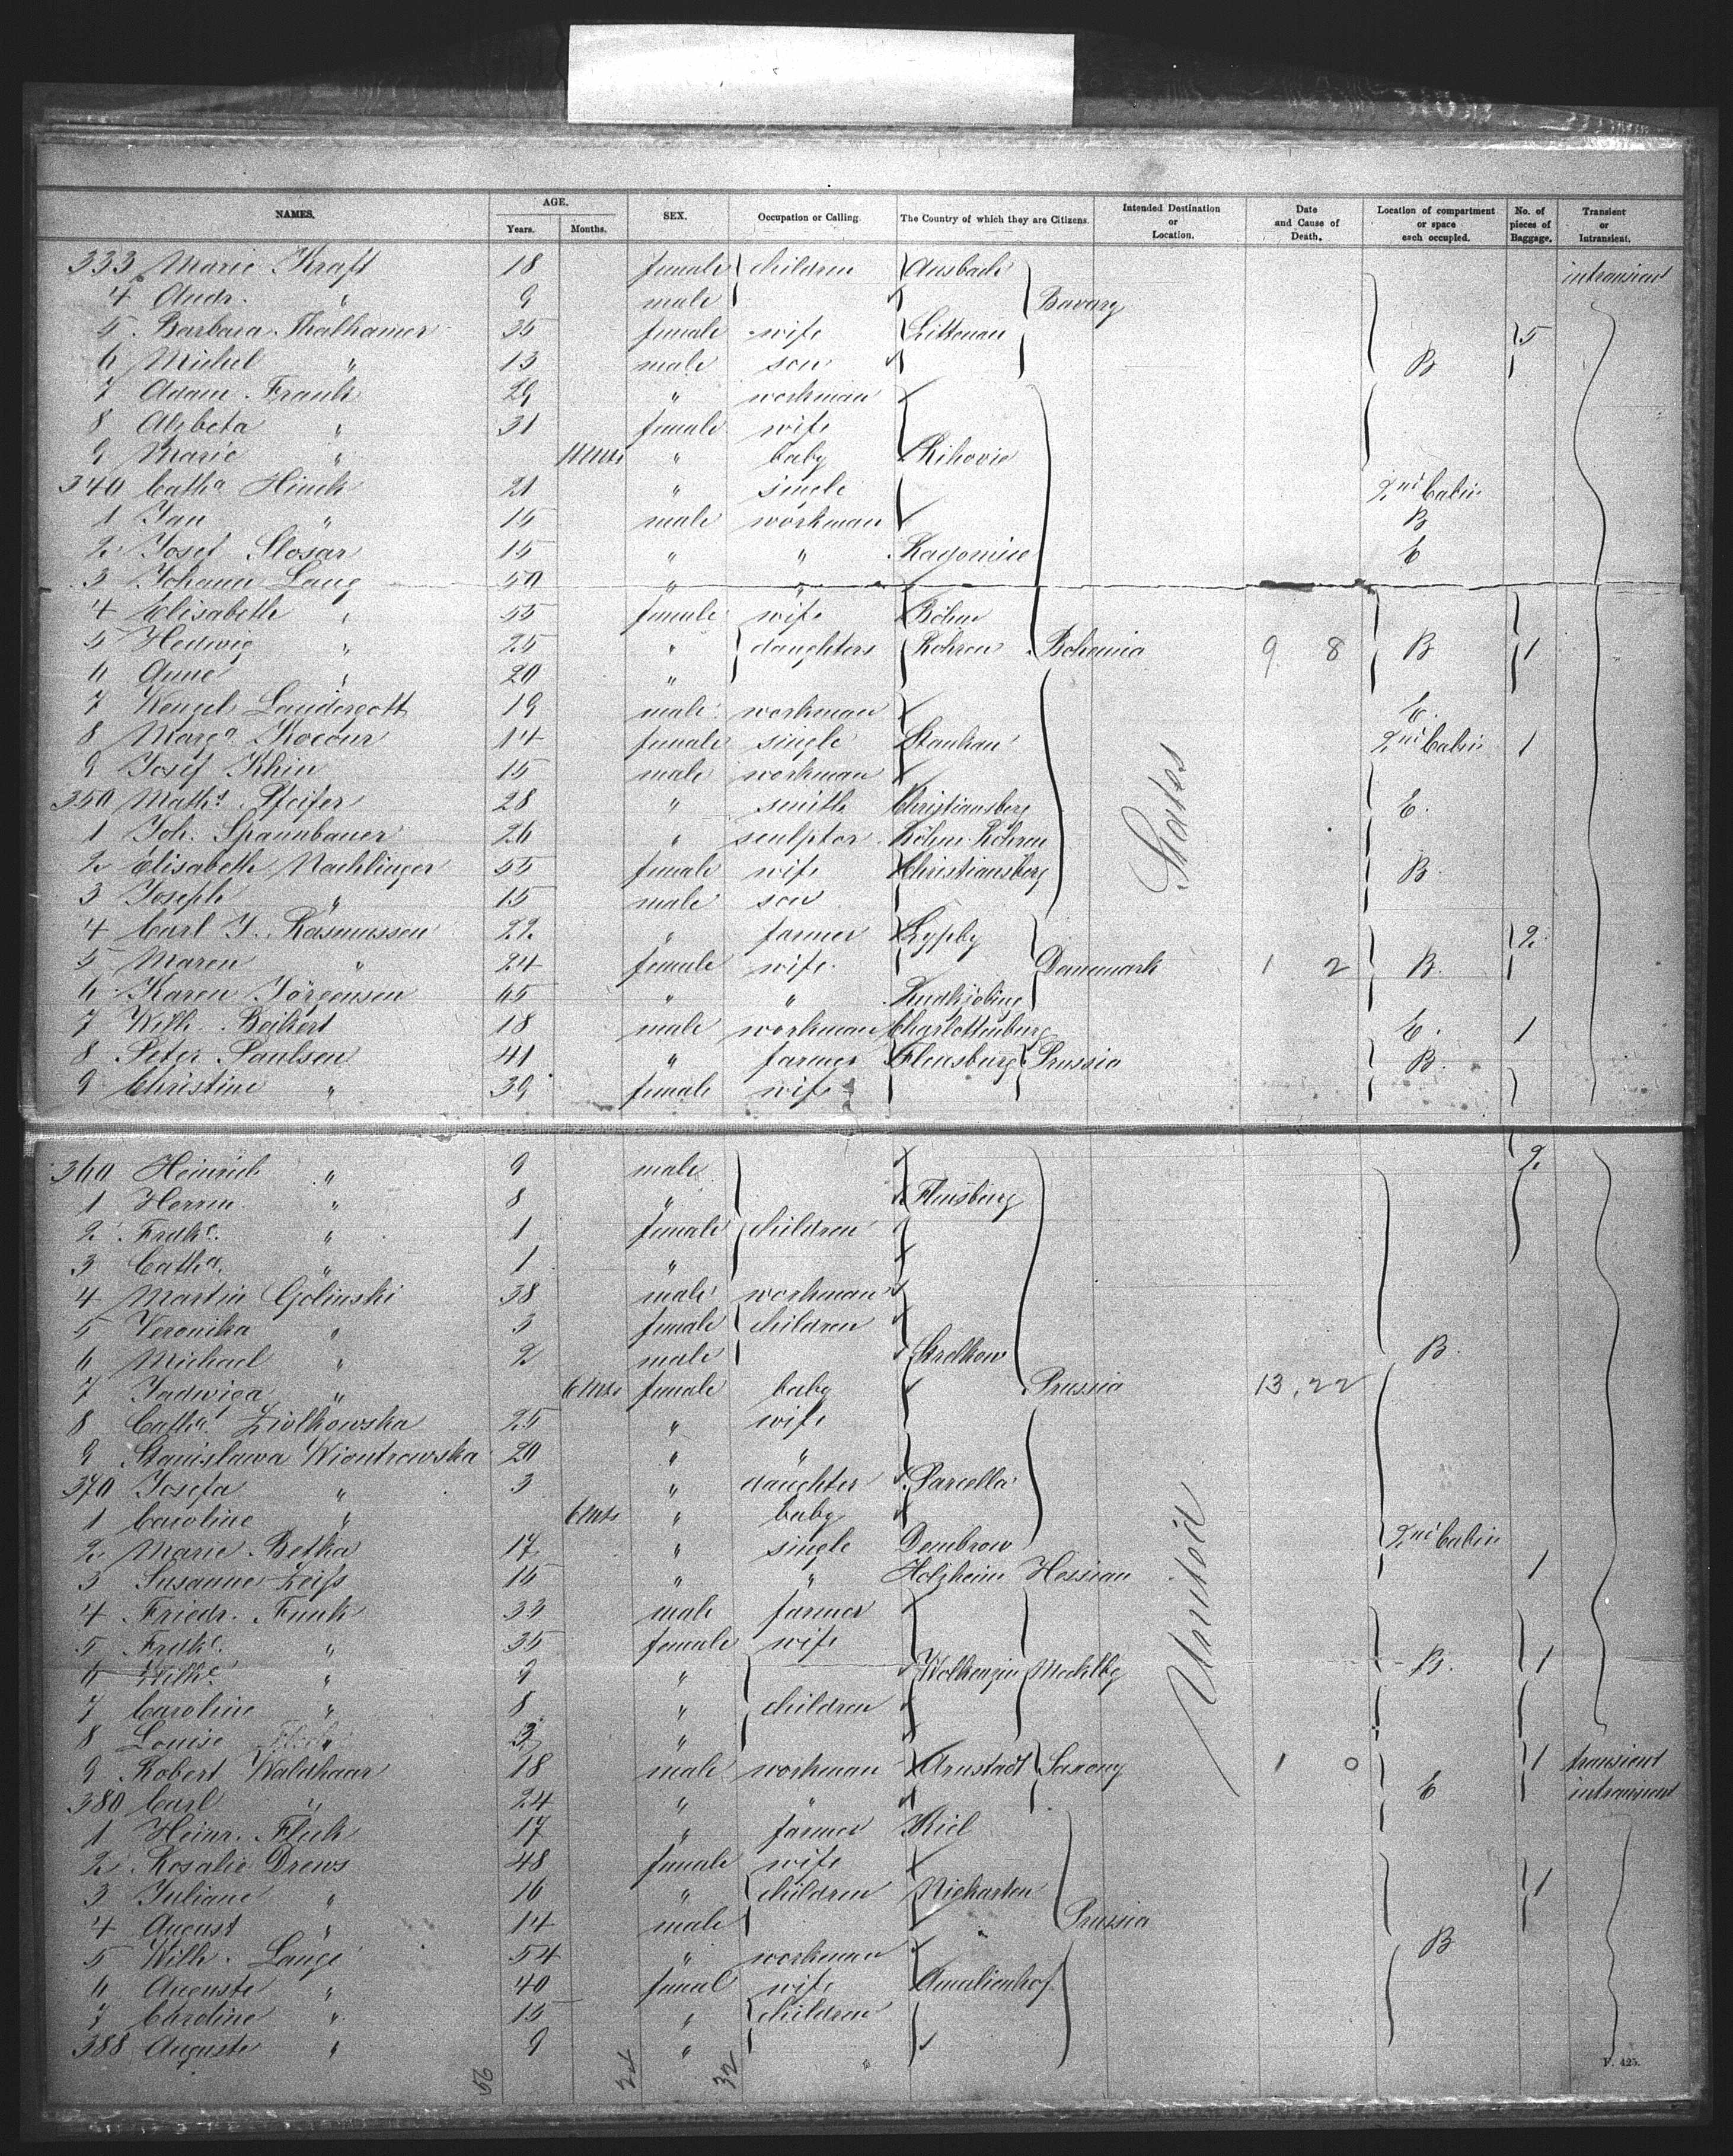 NAMES. AGE. Years. Months. SEX. Occupation or Calling. The Country of which they are Citizens. Intended Destination or Location. Date and Cause of Death. Location of compartment or space each occupied. No. of pieces of Baggage. Transient or Intransient.
333 Marie Kraft 18 female children Ansbach intransient
4 Andr. " 9 male Bavary
5 Barbara Thalhamer 35 female wife Littenau 5
6 Michel " 13 male son B
7 Adam Frank 29 " workman
8 Alzbeta " 31 female wife
9 Marie " 11 Mts " baby Rihovic
340 Cath.a Hinek 21 " single 2nd Cabin
1 Jan " 15 male workman B
2 Josef Slosar 15 " " E
3 Johann Lang 50 " "
4 Elisabeth " 55 female wife Böhm
5 Hedwig " 25 " daughters Rohren Bohemia 9 8 B 1
6 Anne " 20 "
7 Wenzel Landergott 19 male workman E.
8 Marg.a Kocour 14 female single Stankau 2nd Cabin 1
9 Josef Khin 15 male workman
350 Math.s Pfeifer 28 " smith Christiansberg E.
1 Joh. Spannbauer 26 " sculptor Böhm. Röhren States
2 Elisabeth Nachlinger 55 female wife Christiansberg B.
3 Joseph " 15 male son
4 Carl J. Rasmussen 22 " farmer 2
5 Maren " 24 female wife Danemark 1 2 B.
6 Karen Jörgensen 65 " " Rudkjöbing
7 Wilh. Beikert 18 male workman Charlottenburg E. 1
8 Peter Paulsen 41 " farmer Flensburg Prussia B.
9 Christine " 39 female wife
360 Heinrich " 9 male 2
1 Herrm. " 8 " Flensburg
2 Fredk.e " 1 female children
3 Cath.a " 1 "
4 Martin Golinski 38 male workman
5 Veronika " 3 female children
6 Michael " 2 male Strelkow B.
7 Jadwiga " 6 Mts female baby Prussia 13 22
8 Cath.a Ziolkowska 25 " wife
9 Stanislawa Wiontrowska 20 " "
370 Josefa " 3 " daughter Parcella
1 Caroline " 6 Mts " baby
2 Marie Betka 17 " single Dembrow 2nd Cabin
3 Susanne Zeiss 15 " " Holzheim Hessian 1
4 Friedr. Funk 33 male farmer United
5 Fredk.e " 35 female wife
6 Wilh.e " 9 " Wolkenzin Mecklbg B. 1
7 Caroline " 8 " children
8 Louise " 3 "
9 Robert Waldhaar 18 male workman Arnstadt Saxony 1 0 1 transient
380 Carl " 24 " " E intransient
1 Heinr. Fleck 17 " farmer Kiel
2 Rosalie Drews 48 female wife
3 Juliane " 16 " children 1
4 August " 14 male " Prussia
5 Wilh. Lange 54 " workman B
6 Auguste " 40 femal wife Amalienhof
7 Caroline " 15 " children
388 Auguste " 9 "
56 24 32 F. 425.